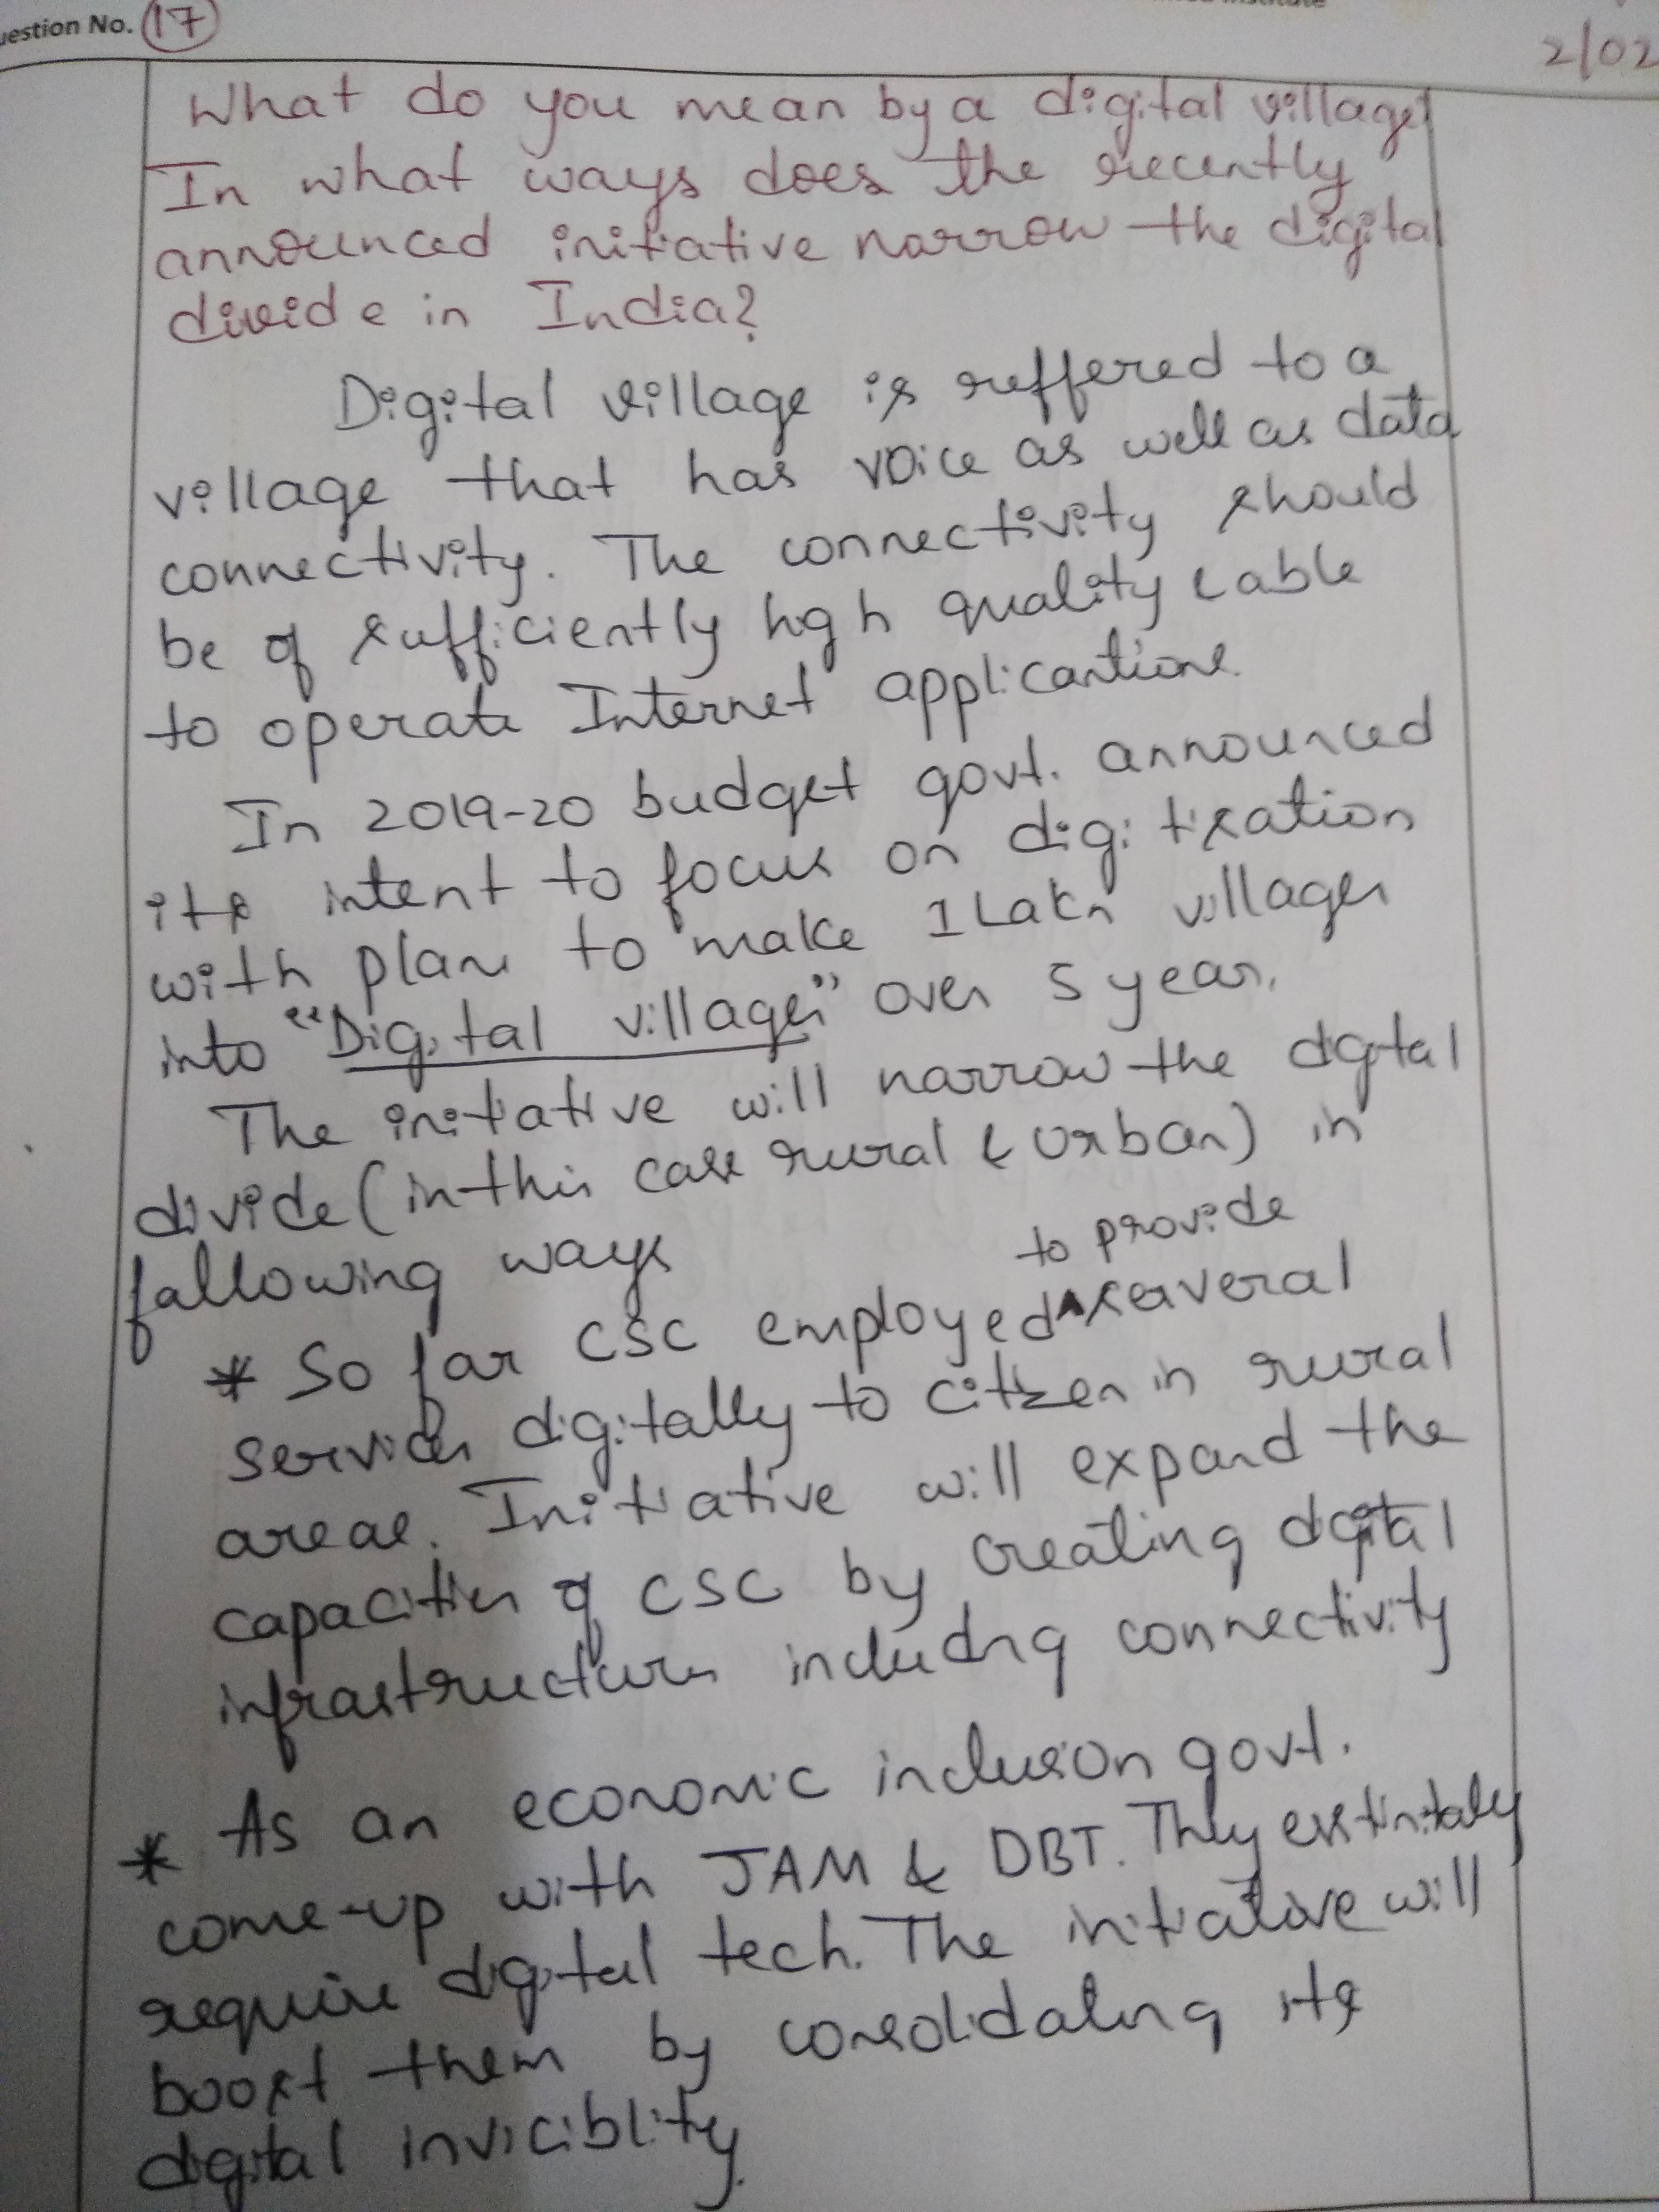 uestion No. 17
2/02
What do you mean by a digital village?
In what ways does the recently
announced initiative narrow the digital
divide in India?
Digital village is reffered to a
village that has voice as well as data
connectivity. The connectivity should
be of sufficiently high quality & able
to operate Internet applicantions.
In 2019-20 budget govt. announced
its intent to focus on digitisation
with plans to make 1 Lakh villages
into "Digital villages" over 5 years.
The initiative will narrow the digital
divide (in this case rural & Urban) in
following ways
to provide
* So far CSC employed ^ serveral
services digitally to citizen in rural
areas. Initiative will expand the
capacities of CSC by creating digital
infrastructures including connectivity
* As an economic inclusion govt.
come-up with JAM & DBT. They
require digital tech. The initiative will
boost them by consolidating its
digital inviciblity.